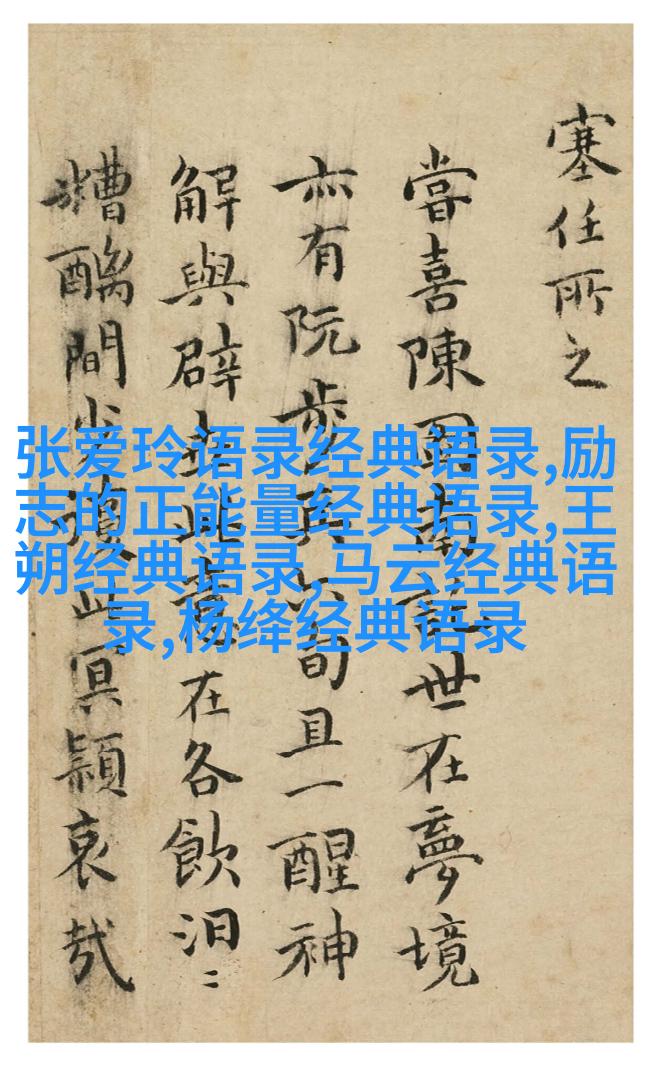 塞任所之
嘗喜陳南世在夢境
亦有阮步兵旬且一醒神
解與辟此意在各飲汨
糟醨間此冥穎哀哉
张爱玲语录经典语录,励
志的正能量经典语录,王
朔经典语录,马云经典语
录,杨绛经典语录